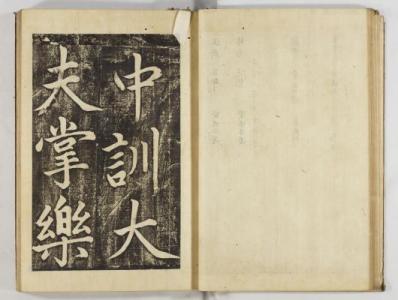 中訓大
夫掌樂